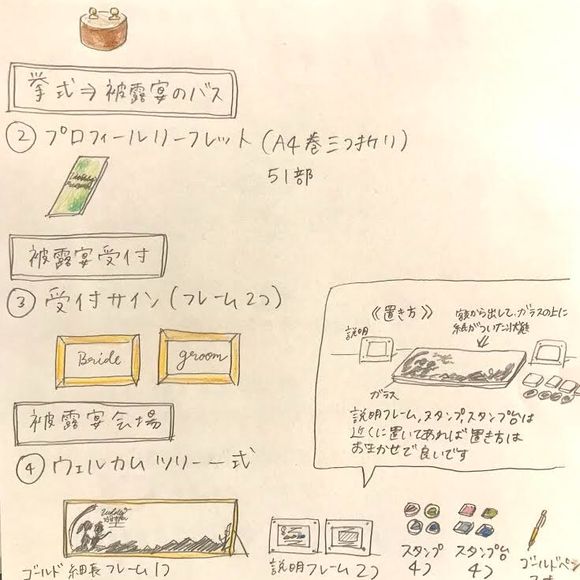 挙式⇒被露宴のバス
② プロフィールリーフレット(A4巻三つ折り)
51部
被露宴受付
③ 受付サイン(フレーム2つ)
Bride
groom
《置き方》
額から出して、ガラスの上に
紙がついた状態
説明
ガラス
説明フレーム、スタンプ、スタンプ台は
近くに置いてあれば置き方は
おまかせで良いです
被露宴会場
④ ウェルカムツリー一式
ゴールド細長フレーム1つ
説明フレーム2つ
スタンプ
4つ
スタンプ台
4つ
ゴールドペン